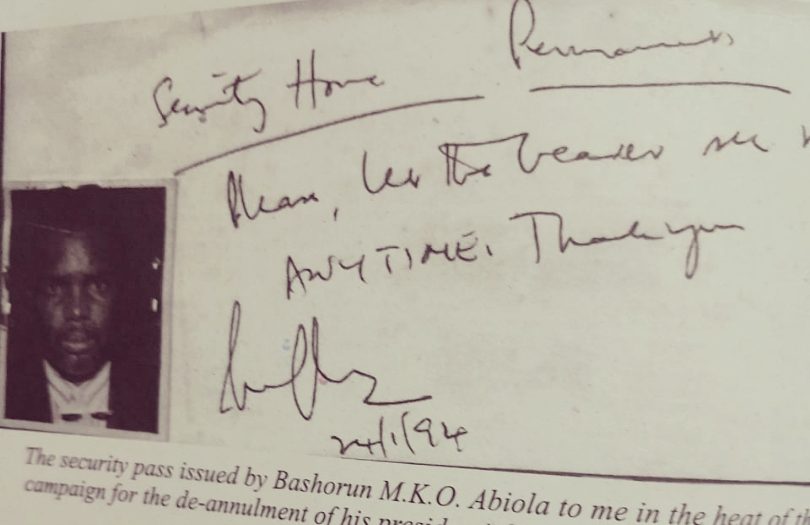 Security Home Permanent
Please, let the bearer see
ANYTIME. Thank you
24/1/94
The security pass issued by Bashorun M.K.O. Abiola to me in the heat of
campaign for the de-annulment of his